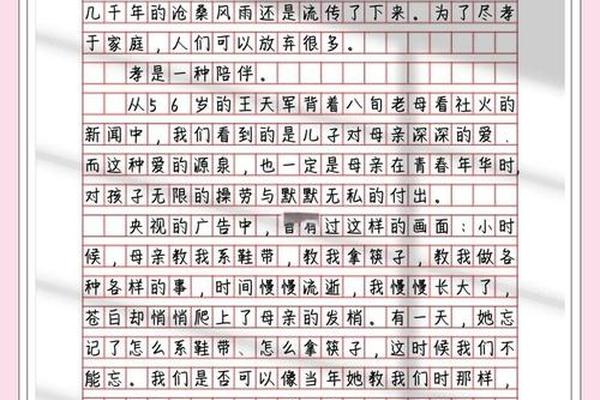 几千年的沧桑风雨还是流传了下来。为了尽孝
于家庭，人们可以放弃很多。
孝是一种陪伴。
从56岁的王天军背着八旬老母看社火的
新闻中，我们看到的是儿子对母亲深深的爱．
而这种爱的源泉，也一定是母亲在青春年华时，
对孩子无限的操劳与默默无私的付出。
央视的广告中，曾有过这样的画面：小时
候，母亲教我系鞋带，教我拿筷子，教我做各
种各样的事，时间慢慢流逝，我慢慢长大了，
苍白却悄悄爬上了母亲的发梢。有一天，她忘
记了怎么系鞋带、怎么拿筷子，这时候我们不
能忘。我们是否可以像当年她教我们时那样，